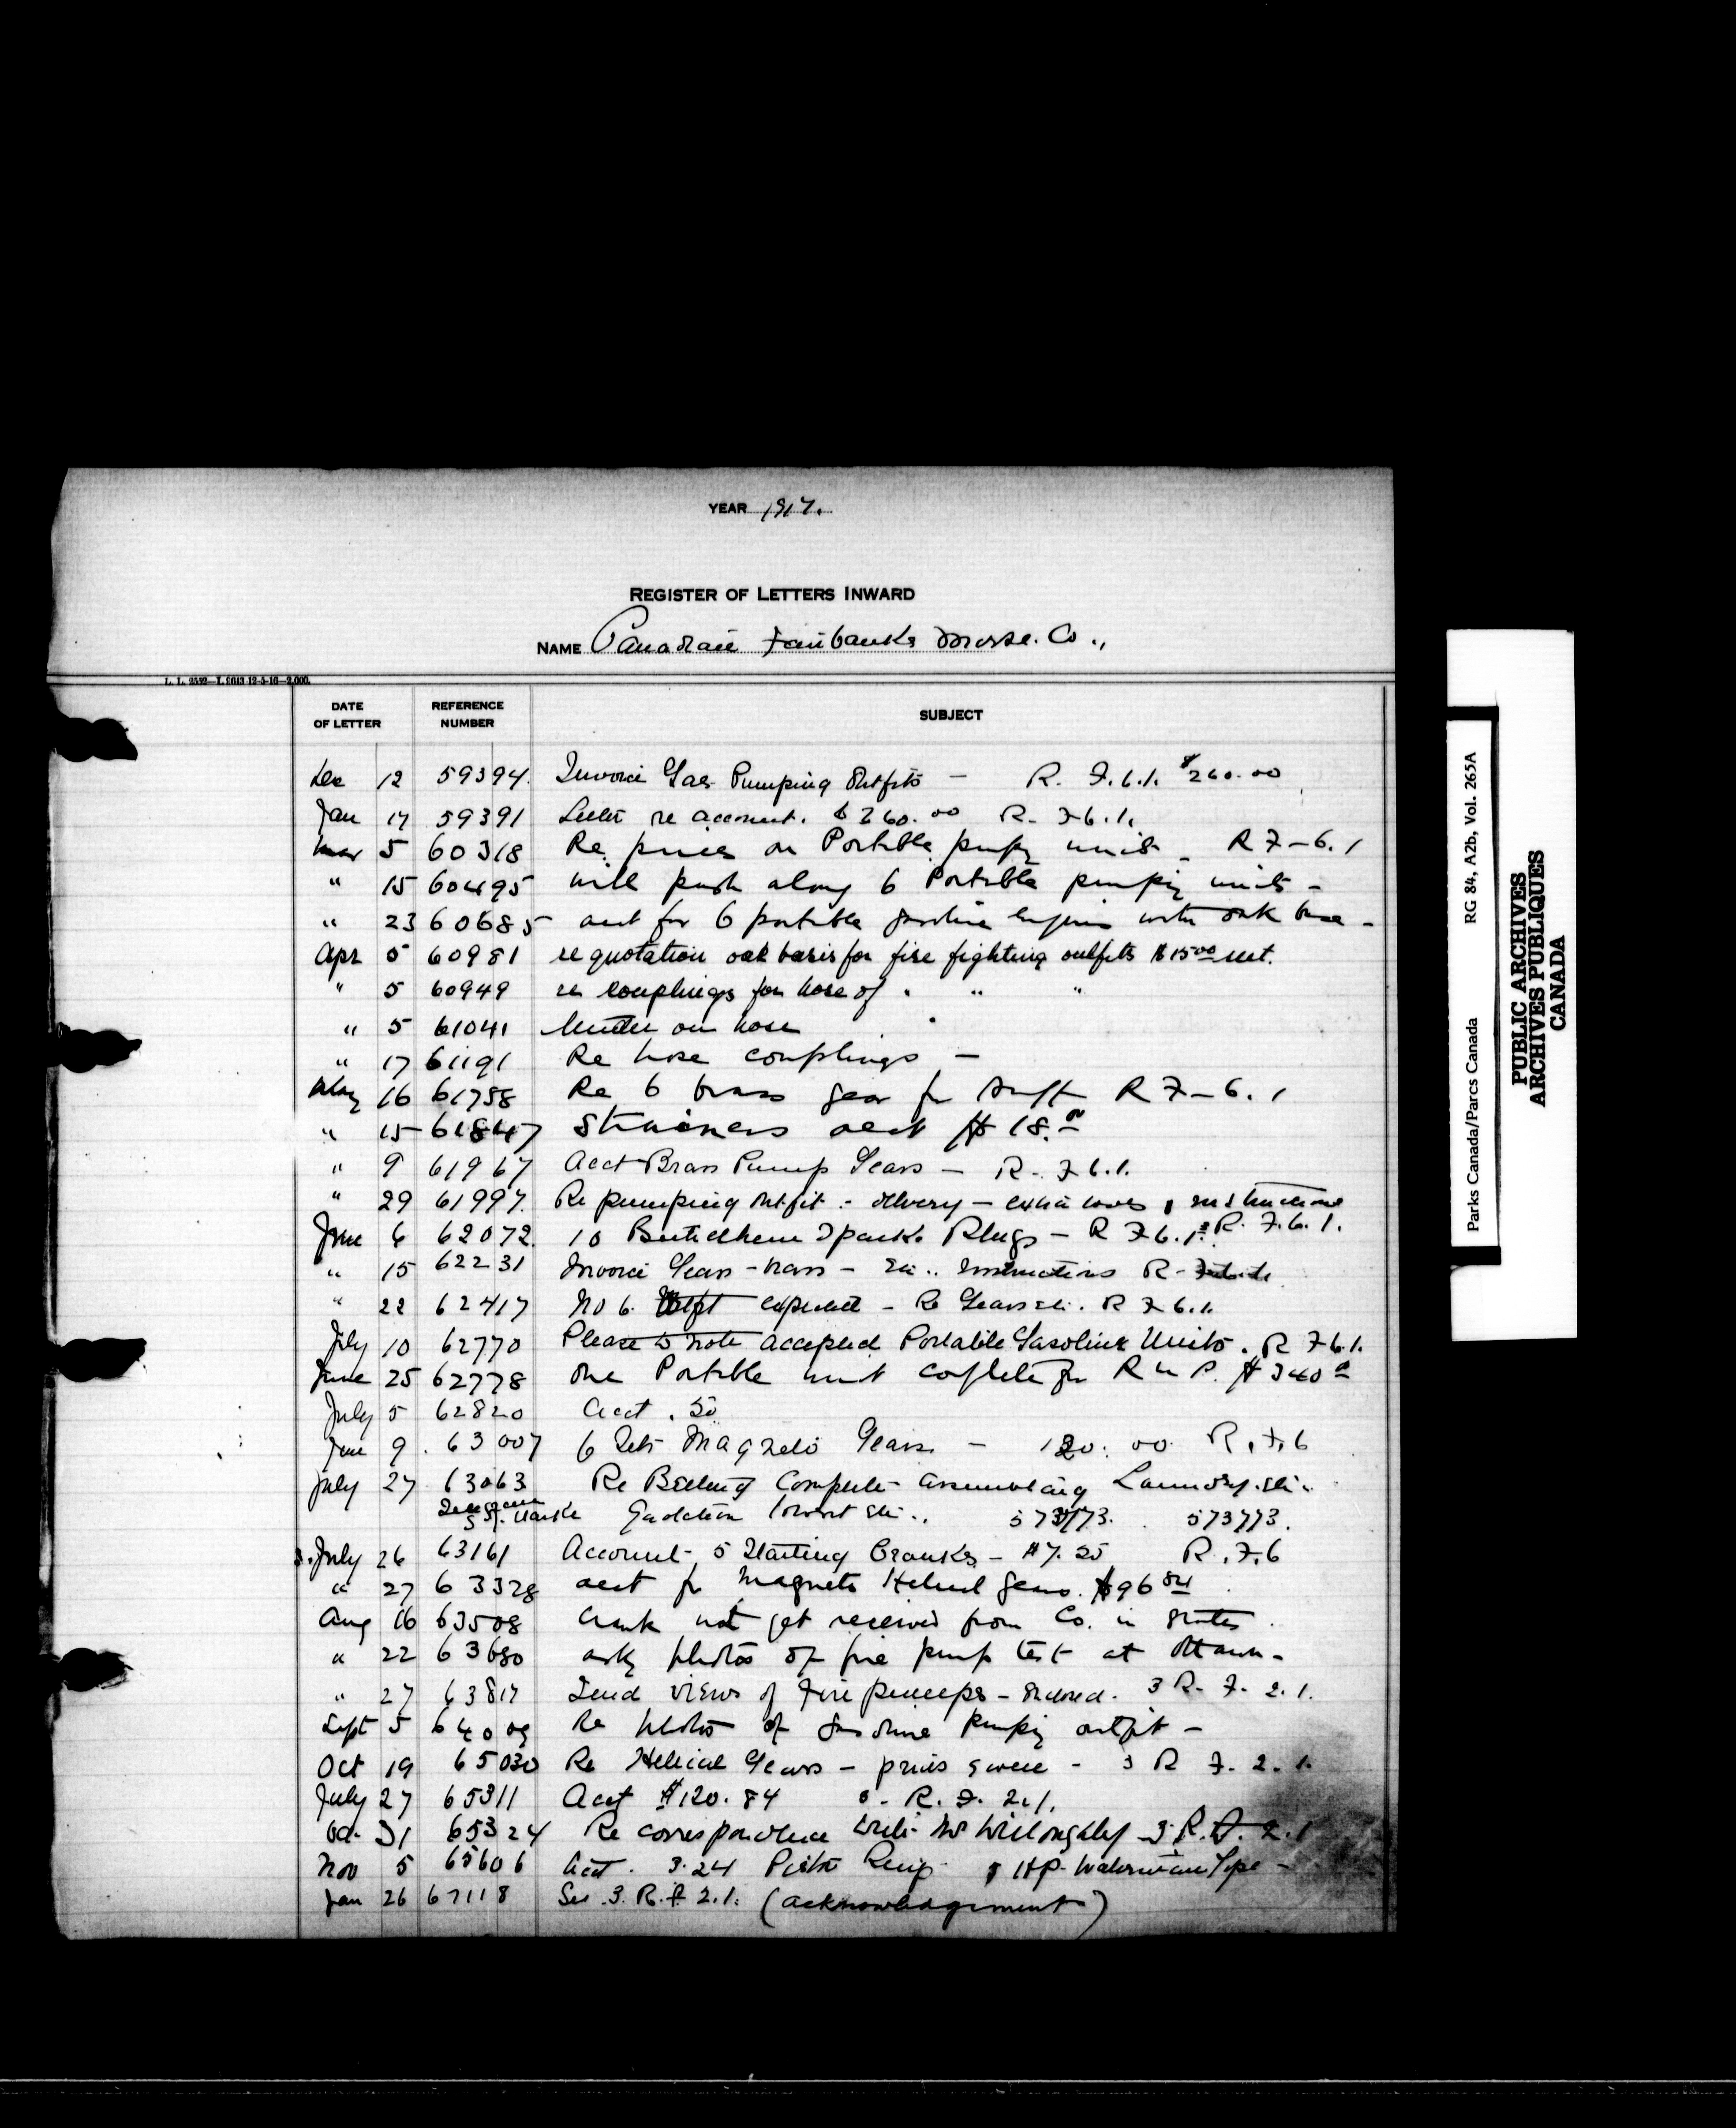 YEAR 1917.
REGISTER OF LETTERS INWARD
NAME Canadian Fairbanks Morse. Co.,
L. L. 2592—L 2613 12-5-16—2,000.
DATE OF LETTER REFERENCE NUMBER SUBJECT
Dec 12 59394. Invoice Gas Pumping Outfits — R. F.6.1. $260.00
Jan 17 59391 Letter re account. $260.00 R. F.6.1.
Mar 5 60318 Re prices on Portable pumpg units — R F—6.1
" 15 60495 will push along 6 Portable pumpig units —
" 23 60685 acct for 6 portable gasoline engines with oak base —
Apr 5 60981 re quotation oak basis for fire fighting outfits $15.00 net.
" 5 60949 re couplings for hose of " " "
" 5 61041 on hose
" 17 61191 Re hose couplings —
May 16 61758 Re 6 brass gear for R F—6.1
" 15 61847 Strainers acct $18.00
" 9 61967 Acct Brass Pump Gears — R. F.6.1.
" 29 61997. Re pumping outfit — delivery — extra instructions
June 6 62072. 10 Sparks Plugs — R F.6.1. R. F.6.1.
" 15 62231 Invoice Gears - brass - Etc.. Instructions R-
" 22 62417 No 6. expected - Re Gears etc. R F.6.1.
July 10 62770 Please to note accepted Portable Gasoline Units. R F.6.1.
June 25 62778 One Portable unit coplete for R M P. $340 00
July 5 62820 Acct. 50
June 9. 63007 6 Sets Magneto Gears — 120.00 R.F.6
July 27 63063 Re Billing Complete assembling Laundry etc..
etc.. 573773. 573773.
July 26 63161 Account- 5 Starting Cranks - $7.25 R.F.6
" 27 63328 acct for Magneto Helical Gears. $96 84
Aug 16 63508 Crank not yet received from Co. in States
" 22 63680 asks photos of fire pump test at Ottawa -
" 27 63817 Send views of Fire pumps - ordered. 3 R. F. 2.1.
Sept 5 64009 Re photos of Gasoline Pumpig outfit —
Oct 19 65030 Re Helical Gears — prices given - 3 R F. 2.1.
July 27 65311 Acct $120.84 3. R. F. 2.1.
Oct 31 65324 Re correspondence with Mr Willoughby 3 R.F. 2.1
Nov 5 65606 Acct. 3.24 Piston Ring HP. Waterman Type —
Jan 26 67118 See 3. R.F. 2.1. (acknowledgement)
Parks Canada/Parcs Canada RG 84, A2b, Vol. 265A
PUBLIC ARCHIVES
ARCHIVES PUBLIQUES
CANADA